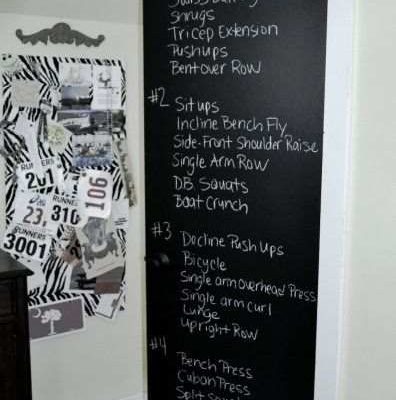 Shrugs
Tricep Extension
Pushups
Bentover Row
#2 Situps
Incline Bench Fly
Side-Front Shoulder Raise
Single Arm Row
DB Squats
Boat Crunch
#3 Decline Push Ups
Bicycle
Single arm overhead Press
Single arm curl
Lunge
Upright Row
#4 Bench Press
Cuban Press
Split
RUNNERS
201
106
RUNNERS
23
310
RUNNERS
3001